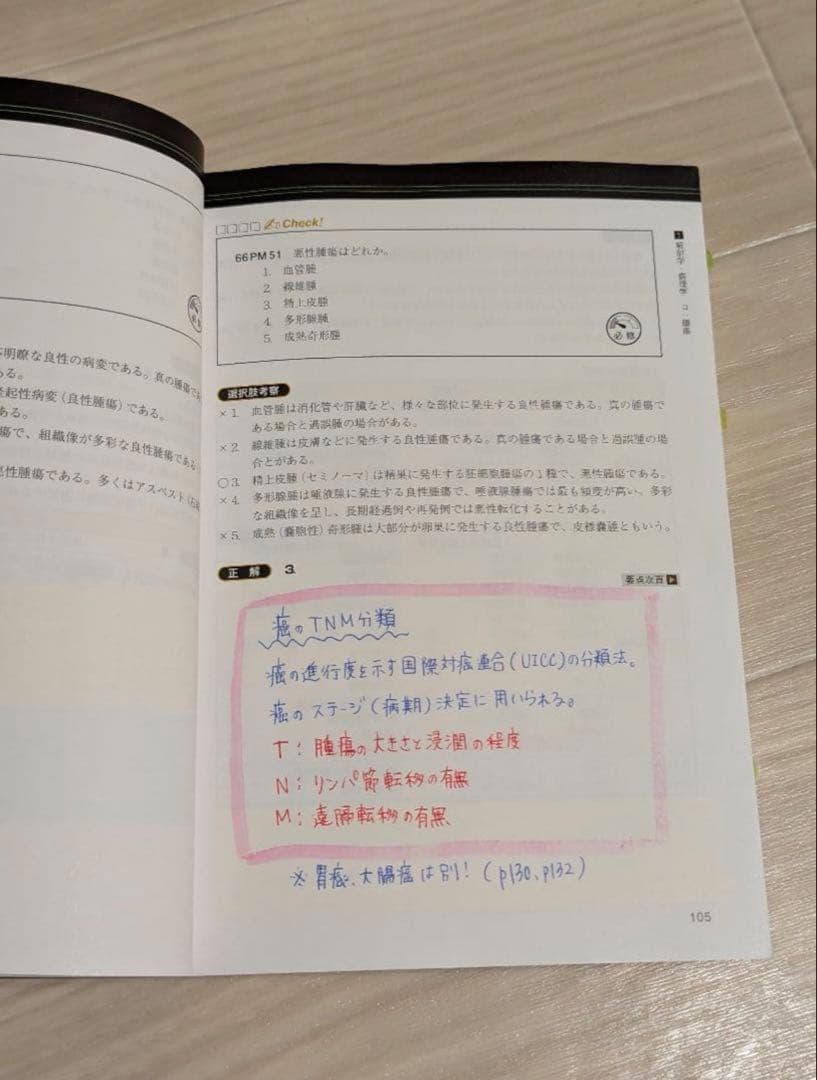 不明瞭な良性の病変である。真の腫瘍で
ある。
起性病変（良性腫瘍）である。
瘍で、組織像が多彩な良性腫瘍である
悪性腫瘍である。多くはアスベスト（石
必修
Check!
66PM51 悪性腫瘍はどれか。
1. 血管腫
2. 線維腫
3. 精上皮腫
4. 多形腺腫
5. 成熟奇形腫
必修
選択肢考察
×1. 血管腫は消化管や肝臓など、様々な部位に発生する良性腫瘍である。真の腫瘍で
ある場合と過誤腫の場合がある。
×2. 線維腫は皮膚などに発生する良性腫瘍である。真の腫瘍である場合と過誤腫の場
合とがある。
○3. 精上皮腫（セミノーマ）は精巣に発生する胚細胞腫瘍の1種で、悪性腫瘍である。
×4. 多形腺腫は唾液腺に発生する良性腫瘍で、唾液腺腫瘍では最も頻度が高い。多彩
な組織像を呈し、長期経過例や再発例では悪性転化することがある。
×5. 成熟（嚢胞性）奇形腫は大部分が卵巣に発生する良性腫瘍で、皮様嚢腫ともいう。
正解 3
要点次頁
癌のTNM分類
癌の進行度を示す国際対癌連合（UICC）の分類法。
癌のステージ（病期）決定に用いられる。
T：腫瘍の大きさと浸潤の程度
N：リンパ節転移の有無
M：遠隔転移の有無
※胃癌、大腸癌は別！（p130、p132）
105
1 解剖学・病理学 コ・腫瘍